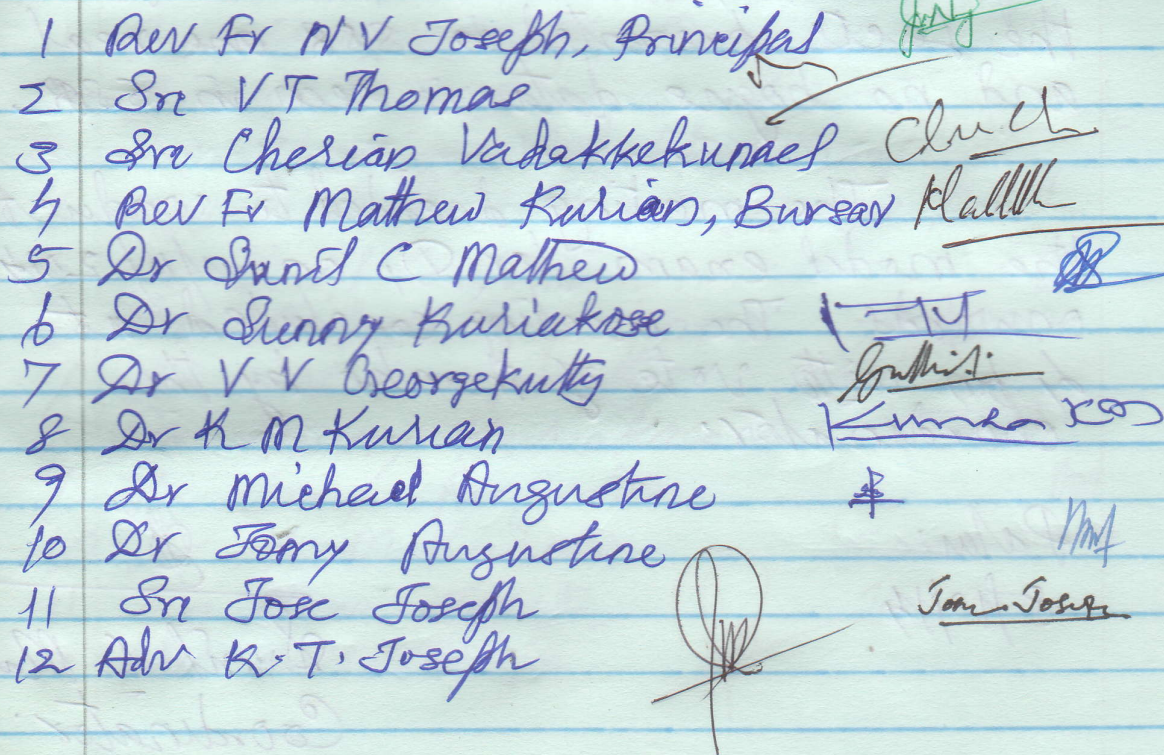 1 Rev Fr N V Joseph, Principal
2 Sri V T Thomas
3 Sri Cherian Vadakkekunnel
4 Rev Fr Mathew Kurian, Bursar
5 Dr Sunil C Mathew
6 Dr Sunny Kuriakose
7 Dr V V Georgekutty
8 Dr K M Kurian
9 Dr Michael Augustine
10 Dr Tomy Augustine
11 Sri Jose Joseph
12 Adv K. T. Joseph